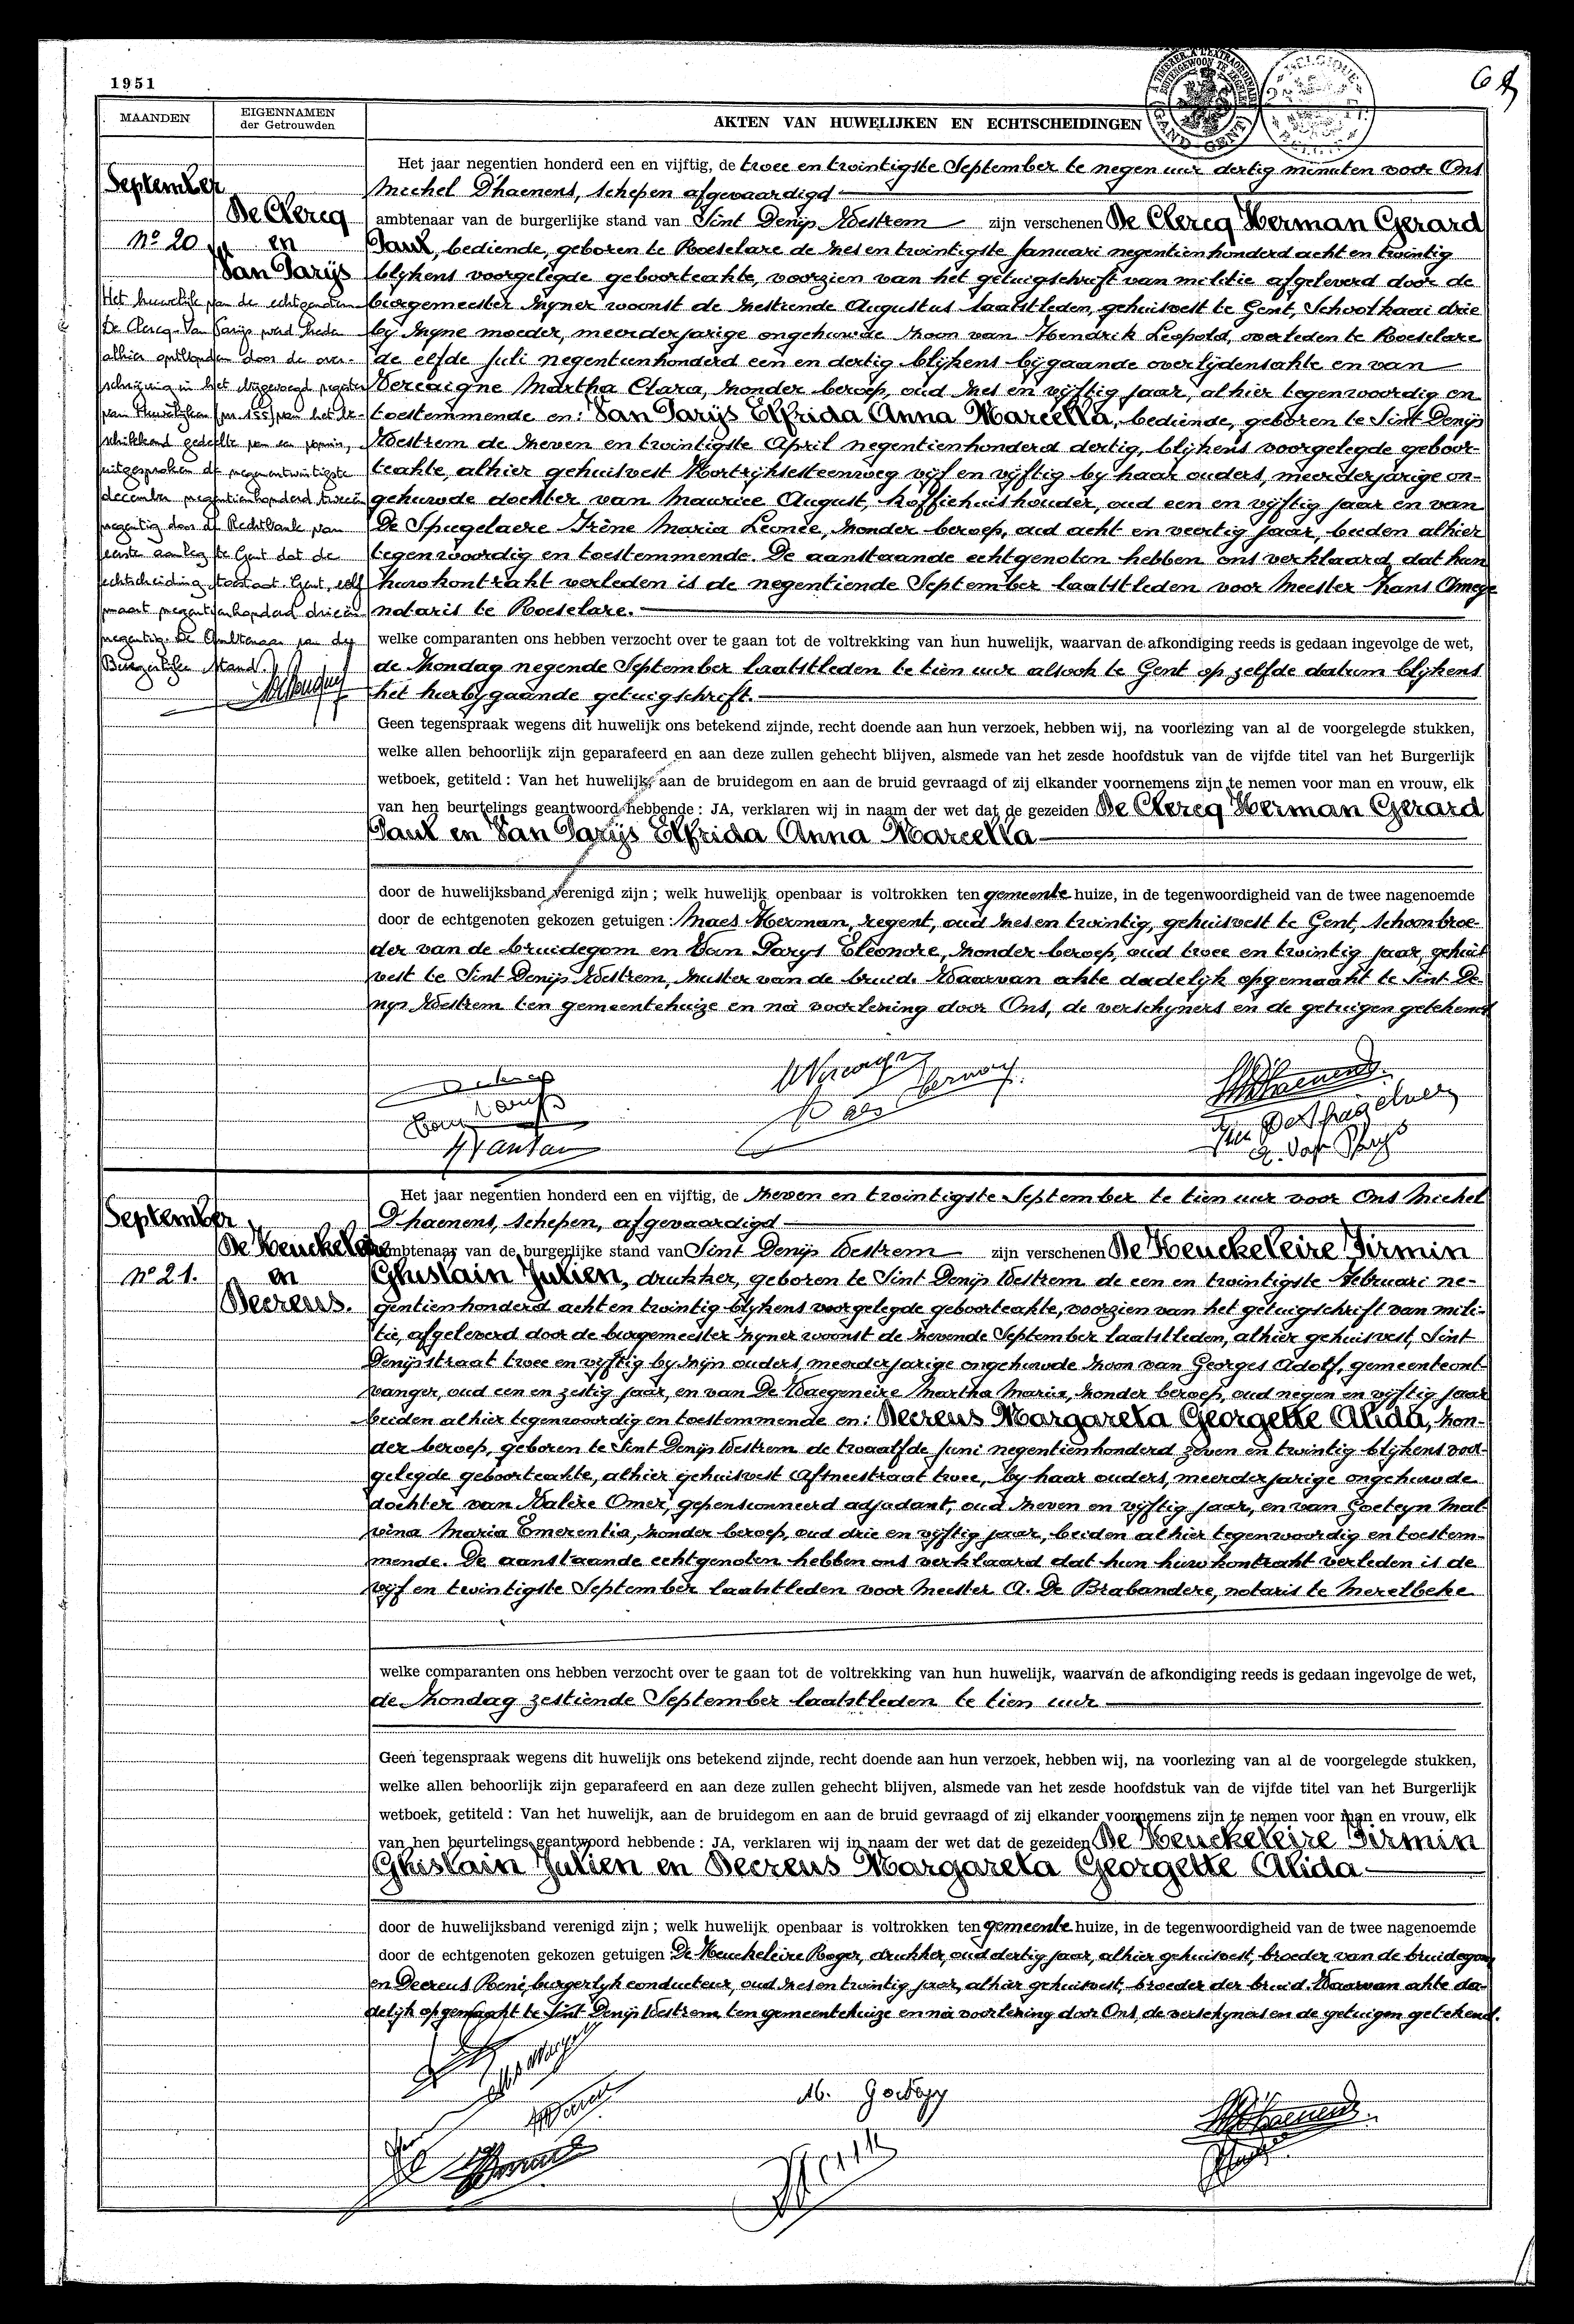 1951
MAANDEN
EIGENNAMEN
der Getrouwden
AKTEN VAN HUWELIJKEN EN ECHTSCHEIDINGEN
September
De Clercq
No 20
en
Van Parijs
Het huwelijk van de echtgenoten
De Clercq-Van Parijs werd heden
alhier ontbonden door de over-
schrijving in het bijgevoegd register
van Huwelijken (nr. 155) van het be-
schikkend gedeelte van een vonnis,
uitgesproken de negenentwintigste
december negentienhonderd tweeën
negentig door de Rechtbank van
eerste aanleg te Gent dat de
echtscheiding toestaat. Gent, elf
maart negentienhonderd drieën
negentig. De Ambtenaar van de
Burgerlijke Stand.
Het jaar negentien honderd een en vijftig, de twee en twintigste September te negen uur dertig minuten voor Ons
Michel D'haenens, schepen afgevaardigd
ambtenaar van de burgerlijke stand van Sint Denijs Westrem zijn verschenen De Clercq Herman Gerard
Paul, bediende, geboren te Roeselare de zes en twintigste Januari negentienhonderd acht en twintig
blijkens voorgelegde geboorteakte, voorzien van het getuigschrift van militie afgeleverd door de
burgemeester zijner woonst de zestiende Augustus laatstleden, gehuisvest te Gent, Schoolkaai drie
bij zijne moeder, meerderjarige ongehuwde zoon van Hendrik Leopold, overleden te Roeselare
de elfde Juli negentienhonderd een en dertig blijkens bijgaande overlijdensakte en van
Vercaigne Martha Clara, zonder beroep, oud zes en vijftig jaar, alhier tegenwoordig en
toestemmende en: Van Parijs Elfrida Anna Marcella, bediende, geboren te Sint Denijs
Westrem de zeven en twintigste April negentienhonderd dertig, blijkens voorgelegde geboor-
teakte, alhier gehuisvest Kortrijksesteenweg vijf en vijftig bij haar ouders, meerderjarige on-
gehuwde dochter van Maurice August, koffiehuishouder, oud een en vijftig jaar en van
De Spugelaere Irène Maria Leonée, zonder beroep, oud acht en veertig jaar, beiden alhier
tegenwoordig en toestemmende. De aanstaande echtgenoten hebben ons verklaard dat hun
huwkontrakt verleden is de negentiende September laatstleden voor Meester Hans
notaris te Roeselare.
welke comparanten ons hebben verzocht over te gaan tot de voltrekking van hun huwelijk, waarvan de afkondiging reeds is gedaan ingevolge de wet,
de Zondag negende September laatstleden te tien uur alsook te Gent op zelfde datum blijkens
het hierbijgaande getuigschrift.
Geen tegenspraak wegens dit huwelijk ons betekend zijnde, recht doende aan hun verzoek, hebben wij, na voorlezing van al de voorgelegde stukken,
welke allen behoorlijk zijn geparafeerd en aan deze zullen gehecht blijven, alsmede van het zesde hoofdstuk van de vijfde titel van het Burgerlijk
wetboek, getiteld : Van het huwelijk, aan de bruidegom en aan de bruid gevraagd of zij elkander voornemens zijn te nemen voor man en vrouw, elk
van hen beurtelings geantwoord hebbende : JA, verklaren wij in naam der wet dat de gezeiden De Clercq Herman Gerard
Paul en Van Parijs Elfrida Anna Marcella
door de huwelijksband verenigd zijn ; welk huwelijk openbaar is voltrokken ten gemeente huize, in de tegenwoordigheid van de twee nagenoemde
door de echtgenoten gekozen getuigen : Maes Herman, regent, oud zes en twintig, gehuisvest te Gent, schoonbroe-
der van de bruidegom en Van Parys Eléonore, zonder beroep, oud twee en twintig jaar, gehuis
vest te Sint Denijs Westrem, zuster van de bruid. Waarvan akte dadelijk opgemaakt te Sint De-
nijs Westrem ten gemeentehuize en na voorlezing door Ons, de verschijners en de getuigen getekend
September
De Keuckeleire
No 21.
en
Decreus.
Het jaar negentien honderd een en vijftig, de zeven en twintigste September te tien uur voor Ons Michel
D'haenens, schepen, afgevaardigd
ambtenaar van de burgerlijke stand van Sint Denijs Westrem zijn verschenen De Keuckeleire Firmin
Ghislain Julien, drukker, geboren te Sint Denijs Westrem de een en twintigste Februari ne-
gentienhonderd acht en twintig blijkens voorgelegde geboorteakte, voorzien van het getuigschrift van mili-
tie, afgeleverd door de burgemeester zijner woonst de zevende September laatstleden, alhier gehuisvest, Sint
Denijsstraat twee en vijftig bij zijn ouders, meerderjarige ongehuwde zoon van Georges Adolf, gemeenteont-
vanger, oud een en zestig jaar, en van De Waegeneire Martha Maria, zonder beroep, oud negen en vijftig jaar
beiden alhier tegenwoordig en toestemmende en: Decreus Margareta Georgette Alida, zon-
der beroep, geboren te Sint Denijs Westrem de twaalfde Juni negentienhonderd zeven en twintig blijkens voor-
gelegde geboorteakte, alhier gehuisvest Afsneestraat twee, bij haar ouders, meerderjarige ongehuwde
dochter van Valère Omer, gepensionneerd adjudant, oud zeven en vijftig jaar, en van Goeteyn Mal
vina Maria Emerentia, zonder beroep, oud drie en vijftig jaar, beiden alhier tegenwoordig en toestem-
mende. De aanstaande echtgenoten hebben ons verklaard dat hun huwkontrakt verleden is de
vijf en twintigste September laatstleden voor Meester A. De Brabandere, notaris te Merelbeke
welke comparanten ons hebben verzocht over te gaan tot de voltrekking van hun huwelijk, waarvan de afkondiging reeds is gedaan ingevolge de wet,
de Zondag zestiende September laatstleden te tien uur
Geen tegenspraak wegens dit huwelijk ons betekend zijnde, recht doende aan hun verzoek, hebben wij, na voorlezing van al de voorgelegde stukken,
welke allen behoorlijk zijn geparafeerd en aan deze zullen gehecht blijven, alsmede van het zesde hoofdstuk van de vijfde titel van het Burgerlijk
wetboek, getiteld : Van het huwelijk, aan de bruidegom en aan de bruid gevraagd of zij elkander voornemens zijn te nemen voor man en vrouw, elk
van hen beurtelings geantwoord hebbende : JA, verklaren wij in naam der wet dat de gezeiden De Keuckeleire Firmin
Ghislain Julien en Decreus Margareta Georgette Alida
door de huwelijksband verenigd zijn ; welk huwelijk openbaar is voltrokken ten gemeente huize, in de tegenwoordigheid van de twee nagenoemde
door de echtgenoten gekozen getuigen : De Keuckeleire Roger, drukker, oud dertig jaar, alhier gehuisvest, broeder van de bruidegom
en Decreus René, burgerlijk conducteur, oud zes en twintig jaar, alhier gehuisvest, broeder der bruid. Waarvan akte da-
delijk opgemaakt te Sint Denijs Westrem, ten gemeentehuize en na voorlezing door Ons, de verschijners en de getuigen getekend.